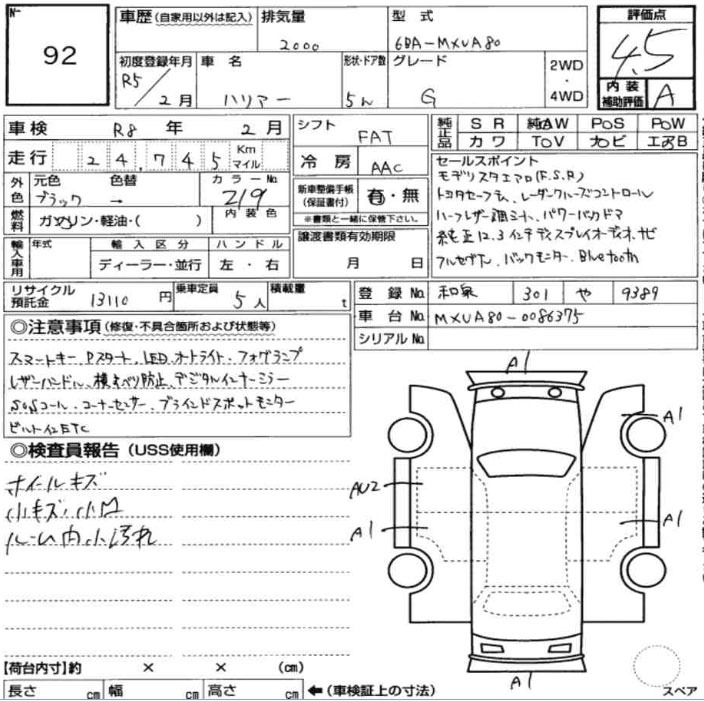 No.
92
車歴（自家用以外は記入） 排気量 型式
2000 6BA-MXUA80
初度登録年月 車名 形状・ドア数 グレード 2WD・4WD
R5/2月 ハリアー 5ん G
評価点
4.5
内装補助評価 A
車検 R8年2月 シフト FAT
走行 24,745 Km マイル
冷房 AAC
純正品 SR 純AW PoS PoW
カワ ToV ナビ エアB
外色 元色 色替 カラーNo.
ブラック → 219
燃料 ガソリン・軽油・（ ） 内装色
新車整備手帳（保証書付） 有・無
※書類と一緒に保管下さい。
輸入車用 年式 輸入区分 ハンドル
ディーラー・並行 左・右
譲渡書類有効期限
月 日
セールスポイント
モデリスタエアロ(F.S.R)
トヨタセーフティ、レーダークルーズコントロール
ハーフレザー調シート、パワーバックドア
純正12.3インチディスプレイオーディオ、ナビ
フルセグTV、バックモニター、Bluetooth
リサイクル預託金 13110円 乗車定員 5人 積載量 t
登録No. 和泉 301 や 9389
車台No. MXUA80-0086375
シリアルNo.
◎注意事項（修復・不具合箇所および状態等）
スマートキー、Pスタート、LED、オートライト、フォグランプ
レザーハンドル、横すべり防止、デジタルインナーミラー
SOSコール、コーナーセンサー、ブラインドスポットモニター
ビルトインETC
◎検査員報告（USS使用欄）
ホイールキズ
小キズ、小凹
ルーム内小汚れ
A1
A1
AU2
A1
A1
A1
スペア
【荷台内寸】約 × × （cm）
長さ cm 幅 cm 高さ cm ←（車検証上の寸法）